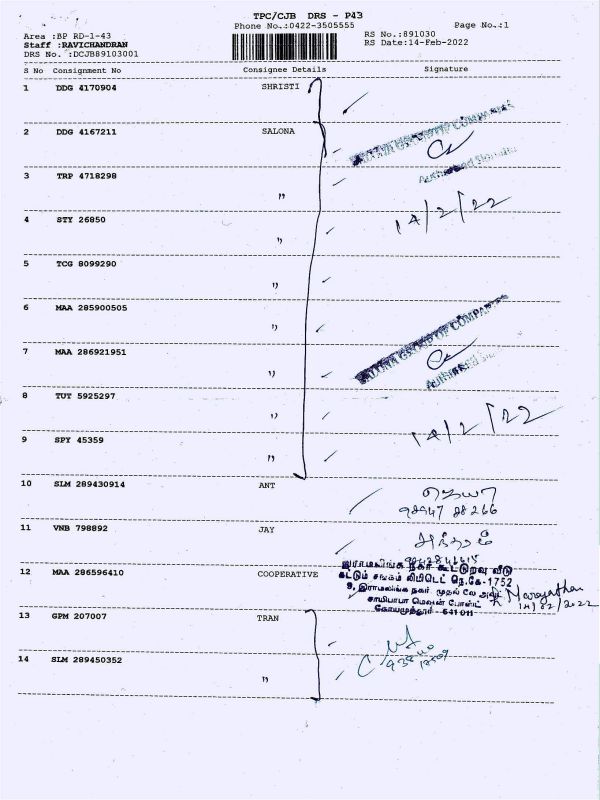 TPC/CJB DRS - P43
Phone No.:0422-3505555 Page No.:1
Area :BP RD-1-43 RS No.:891030
Staff :RAVICHANDRAN RS Date:14-Feb-2022
DRS No. :DCJB89103001
S No Consignment No Consignee Details Signature
1 DDG 4170904 SHRISTI
2 DDG 4167211 SALONA
GROUP OF COMPANIES
Authorised
3 TRP 4718298 "
14/2/22
4 STY 26850 "
5 TCG 8099290 "
6 MAA 285900505 "
GROUP OF COMPANIES
7 MAA 286921951 "
Authorised
8 TUT 5925297 "
14/2/22
9 SPY 45359 "
10 SLM 289430914 ANT
98947 88266
11 VNB 798892 JAY
12 MAA 286596410 COOPERATIVE
இராமலிங்க நகர் கூட்டுறவு வீடு
கட்டும் சங்கம் லிமிடெட் நெ.கே-1752
9, இராமலிங்க நகர் முதல்
சாயிபாபா போஸ்ட்
கோயமுத்தூர் - 641 011
14/02/2022
13 GPM 207007 TRAN
14 SLM 289450352 "